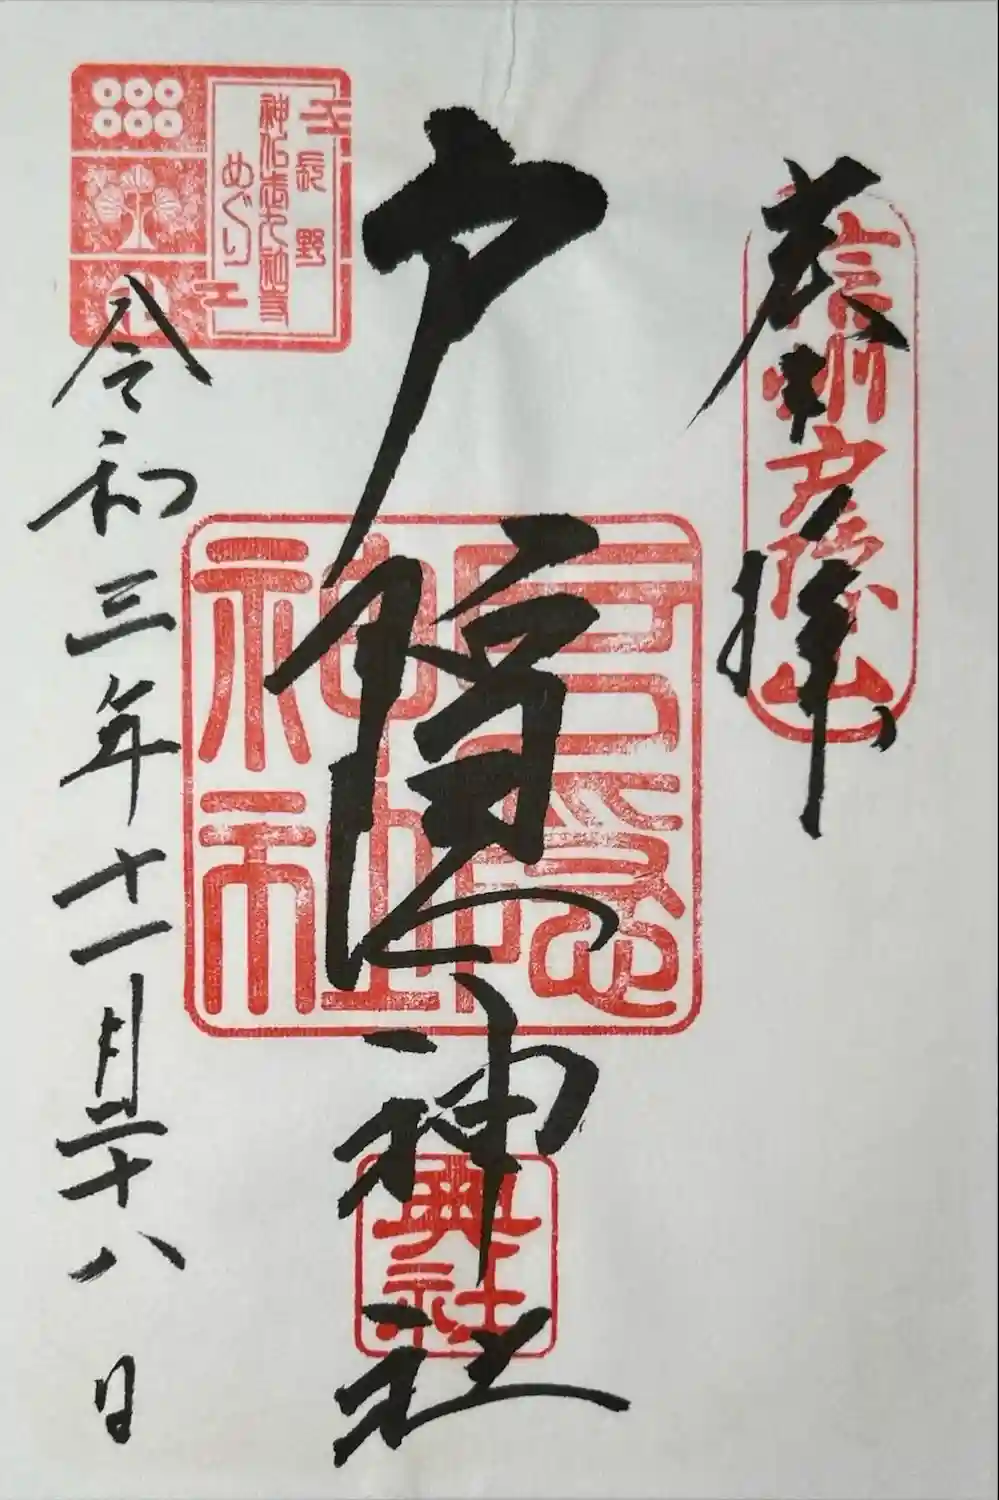 奉拝
信州戸隠山
戸隠神社
奥社
長野
神仏花めぐり
令和三年十一月二十八日